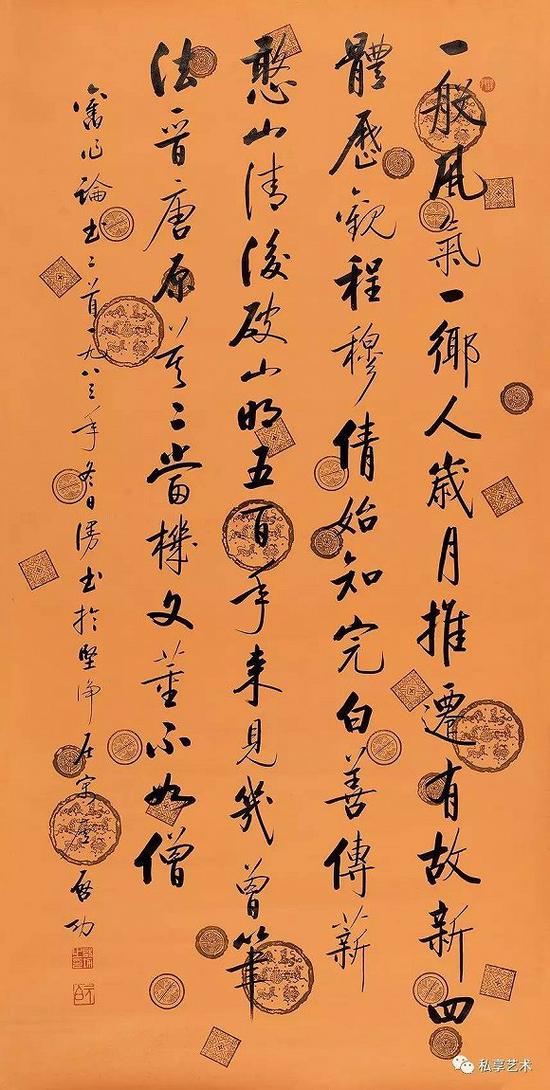 一般風氣一鄉人歲月推遷有故新四
體歷觀程穆倩始知完白善傳薪
憨山清後破山明五百年來見幾曾筆
法晉唐原莫二當機文董不如僧
舊作論書二首一九八三年冬日漫書於堅淨居 啟功
私享艺术